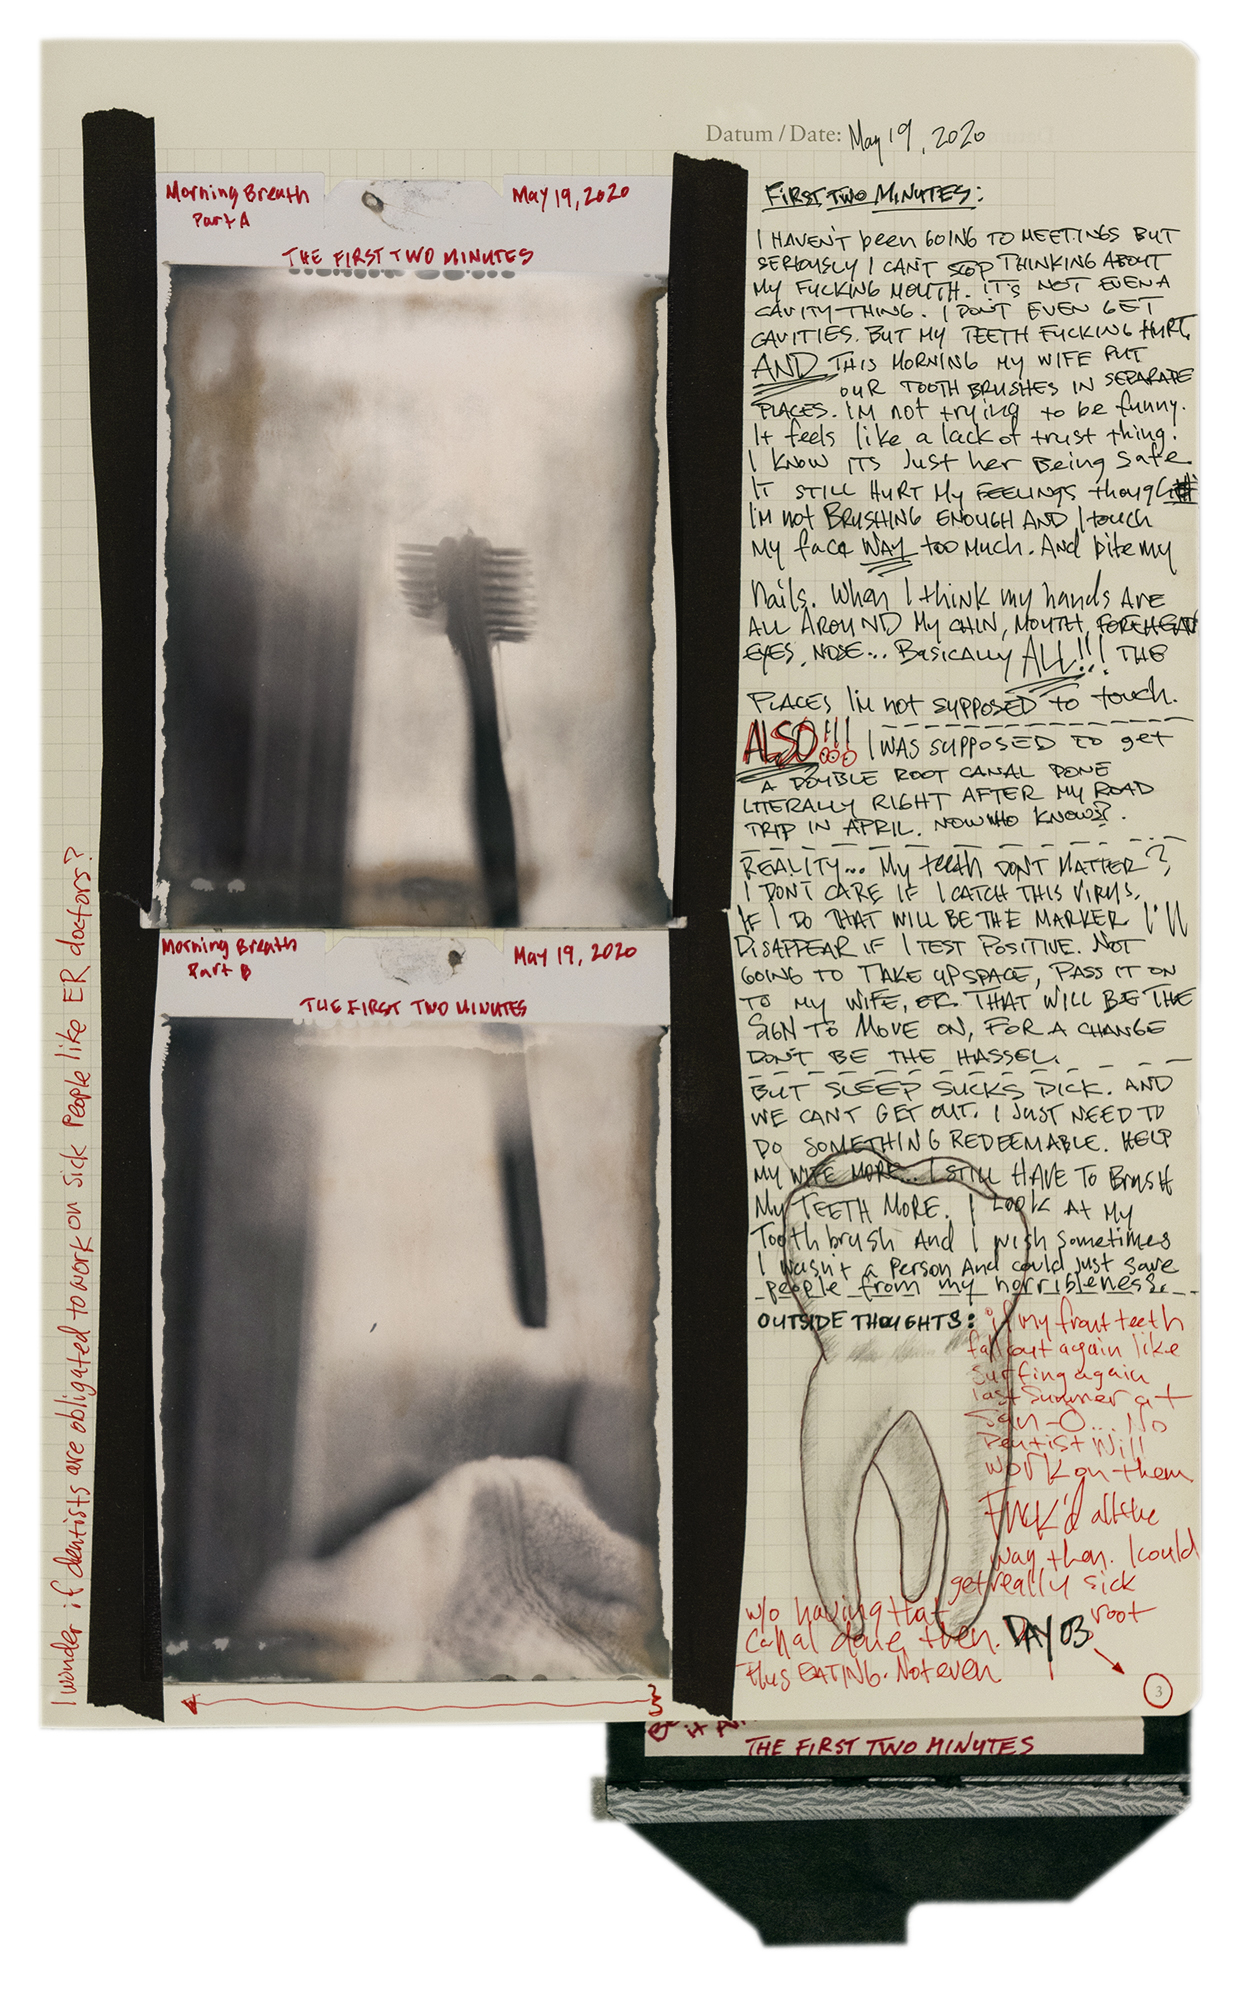 Datum / Date: May 19, 2020
Morning Breath
Part A
May 19, 2020
THE FIRST TWO MINUTES
Morning Breath
Part B
May 19, 2020
THE FIRST TWO MINUTES
I wonder if dentists are obligated to work on sick people like ER doctors?
FIRST TWO MINUTES:
I HAVEN'T been GOING TO MEETINGS BUT
SERIOUSLY I CAN'T STOP THINKING ABOUT
MY FUCKING MOUTH. IT'S NOT EVEN A
CAVITY THING. I DON'T EVEN GET
CAVITIES. BUT MY TEETH FUCKING HURT,
AND THIS MORNING MY WIFE PUT
OUR TOOTH BRUSHES IN SEPARATE
PLACES. I'M not trying to be funny.
It feels like a lack of trust thing.
I KNOW ITS Just her Being Safe.
IT STILL HURT My FEELINGS though
I'M not BRUSHING ENOUGH AND I touch
My face WAY too Much. And bite my
Nails. When I think my hands ARE
ALL AROUND My CHIN, MOUTH, FOREHEAD
EYES, NOSE... Basically ALL!!! THE
PLACES I'm not SUPPOSED to touch.
ALSO!!! I WAS SUPPOSED TO get
A DOUBLE ROOT CANAL DONE
LITERALLY RIGHT AFTER MY ROAD
TRIP IN APRIL. NOW WHO KNOWS?.
REALITY... My teeth DON'T MATTER?
I DON'T CARE IF I CATCH THIS VIRUS.
IF I DO THAT WILL BE THE MARKER I'll
DISAPPEAR IF I TEST POSITIVE. NOT
GOING TO TAKE UP SPACE, PASS IT ON
TO MY WIFE, ER. THAT WILL BE THE
SIGN TO MOVE ON, FOR A CHANGE
DON'T BE THE HASSEL.
BUT SLEEP SUCKS DICK. AND
WE CAN'T GET OUT. I JUST NEED TO
DO SOMETHING REDEEMABLE. HELP
MY WIFE MORE... I STILL HAVE TO Brush
My TEETH MORE. I LOOK AT My
Toothbrush And I wish sometimes
I wasn't a Person And could just save
people from my horribleness.
OUTSIDE THOUGHTS: if my front teeth
fall out again like
surfing again
last Summer at
San-O... No
Dentist Will
work on them
FUCK'd all the
way then. I could
get really sick
w/o having that root
Canal done then.
thus EATING. Not even
DAY 03
3
THE FIRST TWO MINUTES